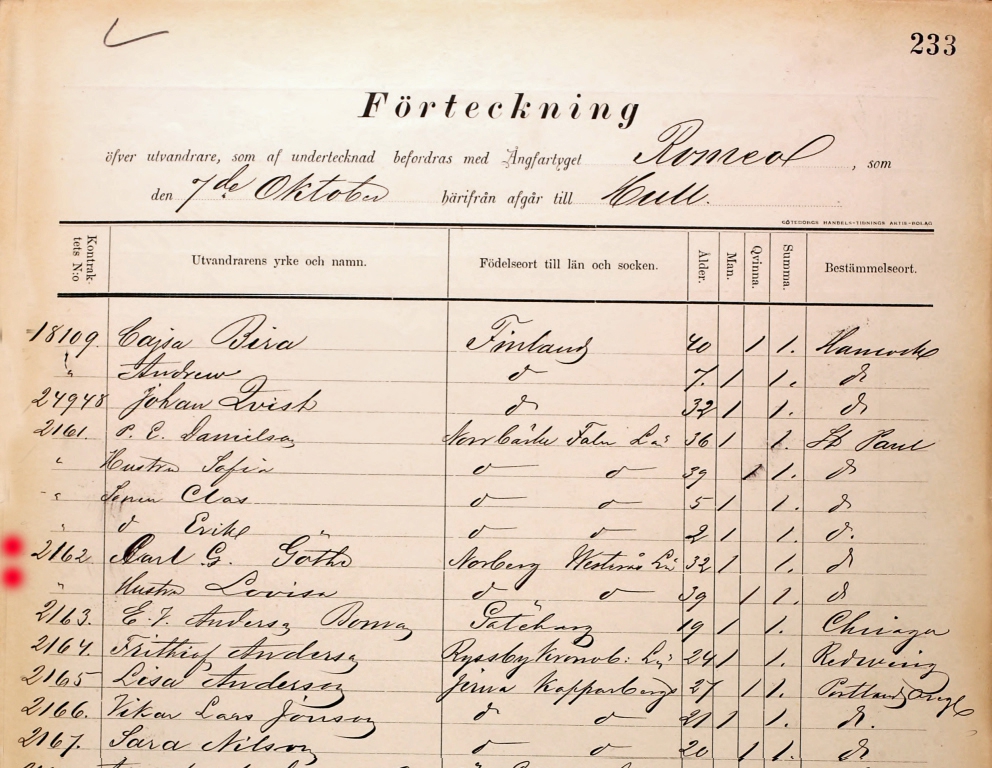 233
Förteckning
öfver utvandrare, som af undertecknad befordras med Ångfartyget Romeo, som
den 7de Oktober härifrån afgår till Hull.
GÖTEBORGS HANDELS-TIDNINGS AKTIE-BOLAG
Kontraktets N:o Utvandrarens yrke och namn. Födelseort till län och socken. Ålder. Man. Qvinna. Summa. Bestämmelseort.
18109. Cajsa Finland 40 1 1. Hancock
" Andrew d 7. 1 1. d
24948 Johan Qvist d 32 1 1. d
2161. P. E. Danielson Norrbärke Falu Län 36 1 1. St Paul
" Hustru Sofia d d 39 1 1. d
" Sonen Clas d d 5 1 1. d
" d Erik d d 2 1 1. d.
2162 Carl G. Göthe Norberg Westerås Län 32 1 1. d
" Hustru Lovisa d d 39 1 1. d
2163. E. V. Anderson Göteborg 19 1 1. Chicago
2164. Frithiof Anderson Ryssby Kronob: Län 24 1 1. Redwing
2165 Lisa Anderson Jerna Kopparbergs 27 1 1. Portland Oreg
2166. Vikar Lars Jonson d d 21 1 1. d.
2167. Sara Nilson d d 20 1 1. d